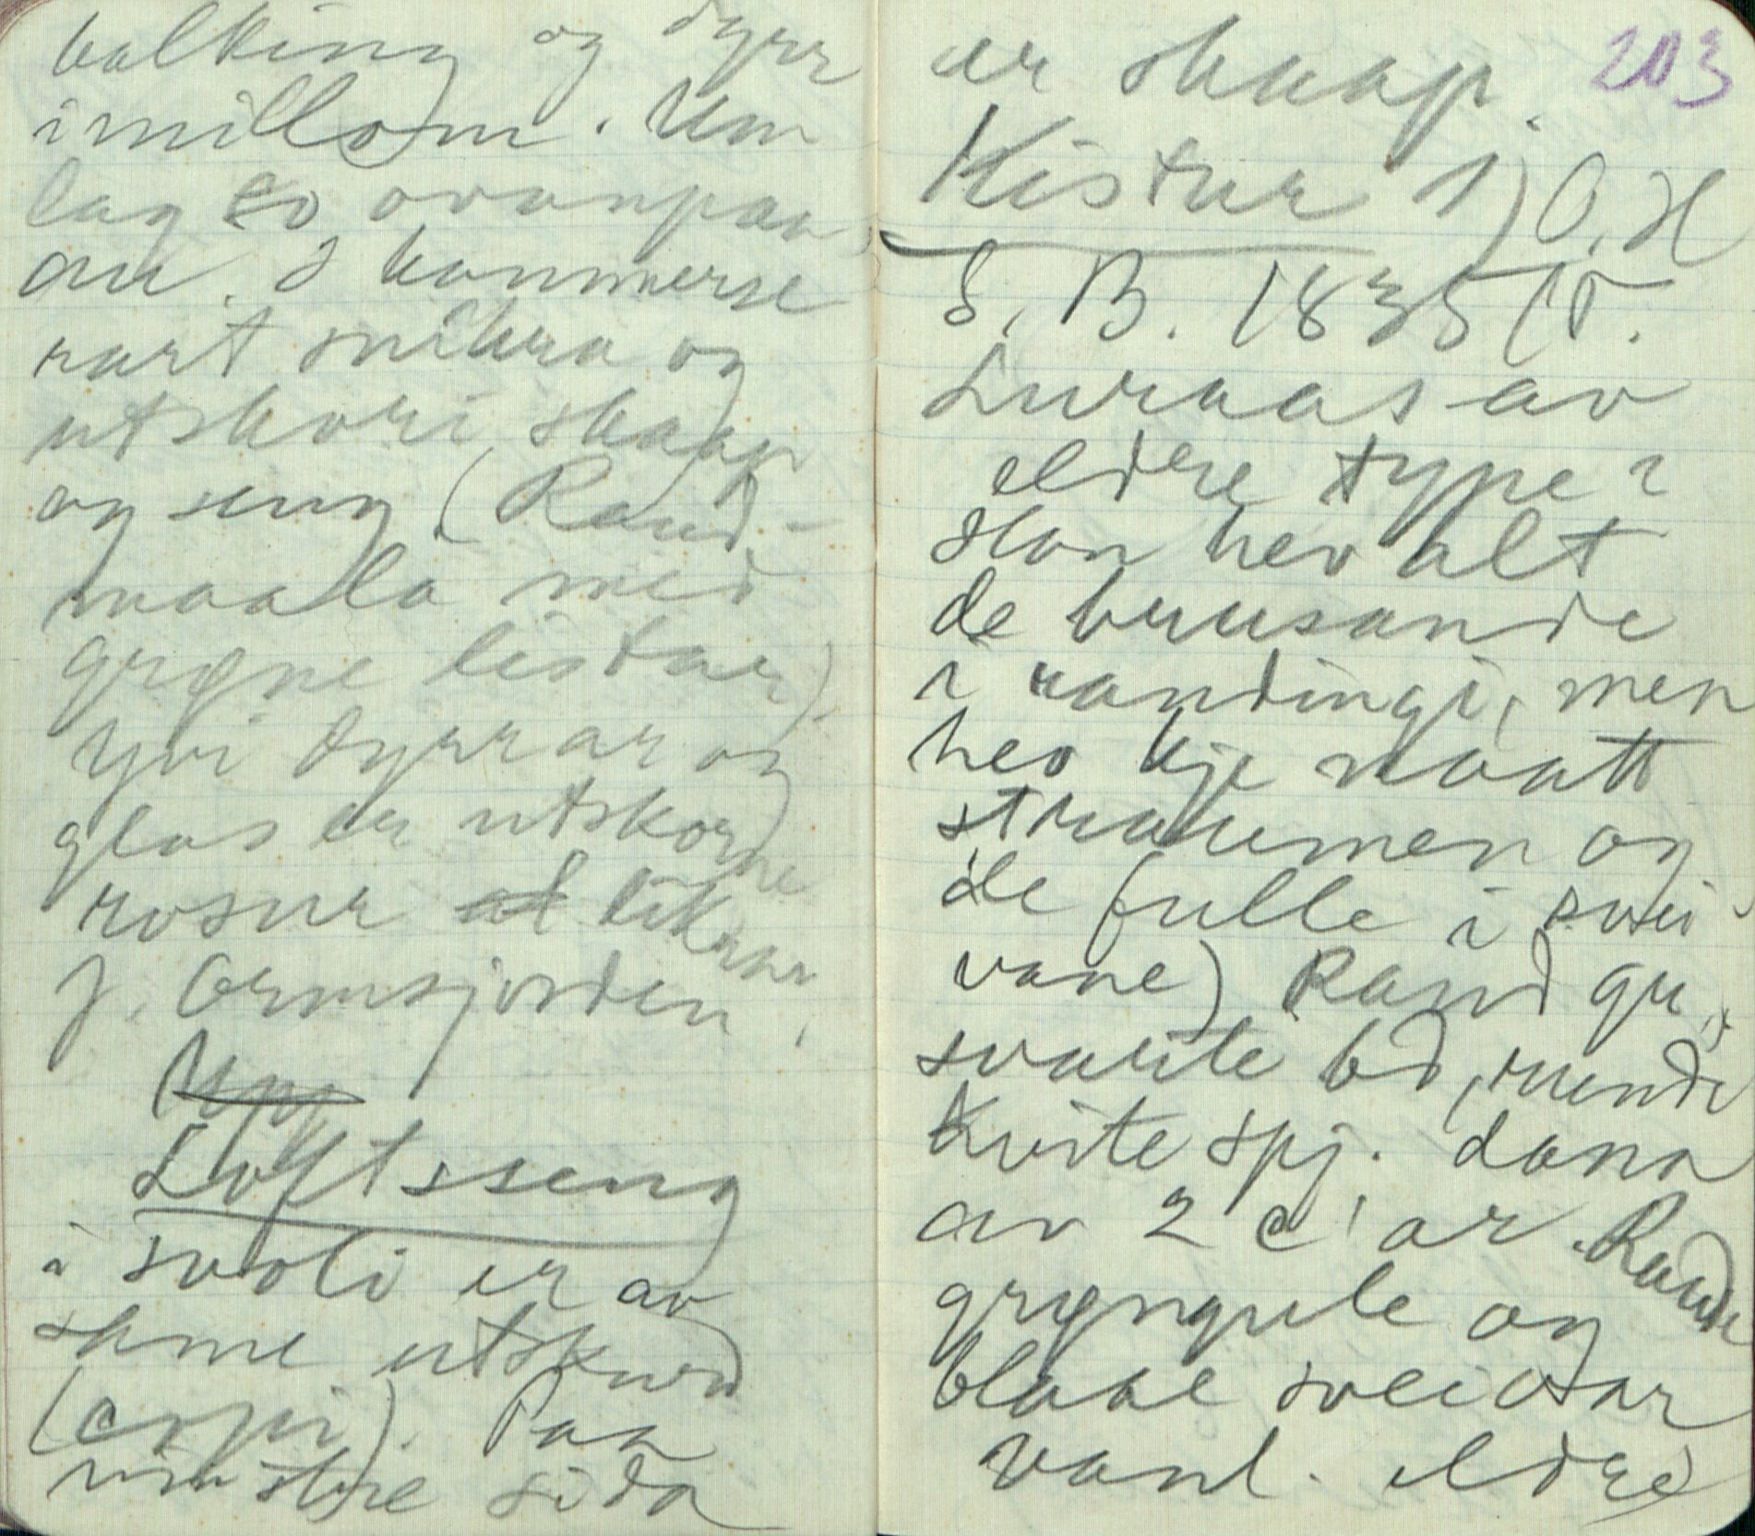 balking og dyrr
imillom. Um
lag so ovanpaa
au. I kammerse
rart snikra og
utskori skaap
og seng (Raud-
maala med
grøne listar)
Yvi dyrrar og
glas er utskorne
rosur likeens
J. Ormsjorden,
Upp
Loftsseng
i svoli er av
same utskurd
(copi). Paa
vinstre sida
er skaap. 203
Kistur 1) O. H
S. B. 1835 (T.
Luraas av
eldre type:
Han hev alt
de brusande
i randingi, men
hev kje naatt
straumen og
de fulle i svei
vane) Rand gu,
svarte bd, runde
kvite spj. dana
av 2 c'ar. Raude
grøngule og
blaae sveivar
vanl. eldre